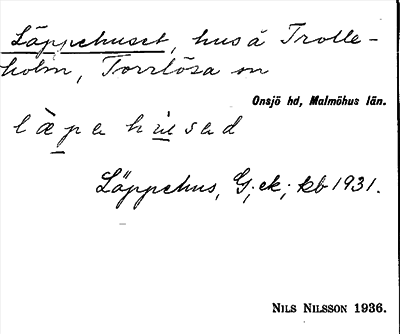 Läppehuset, hus å Trolle-
holm, Torrlösa sn
Onsjö hd, Malmöhus län.
læ̀pehu̇sad
Läppehus, G; ek; kb 1931.
NILS NILSSON 1936.